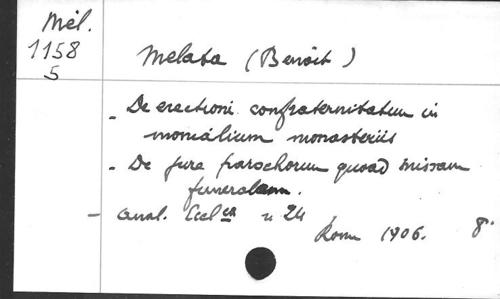 Mél.
1158
5
Melata (Benoit)
- De erectioni confraternitatum in
monialium monasteriis
- De jure parochorum quoad missam
funeralem.
- Anal. Eccl ca n 24
Rome 1906. 8°